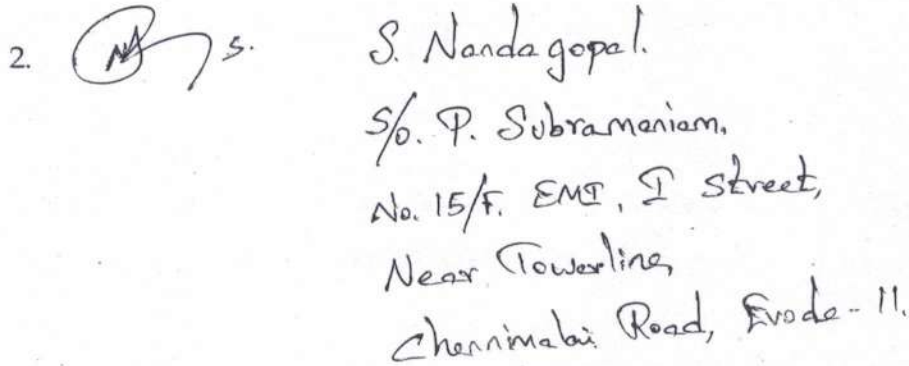 2. S. S. Nandagopal.
S/o. P. Subramaniam,
No. 15/F. EMI, I Street,
Near Towerline,
Chennimalai Road, Erode - 11.